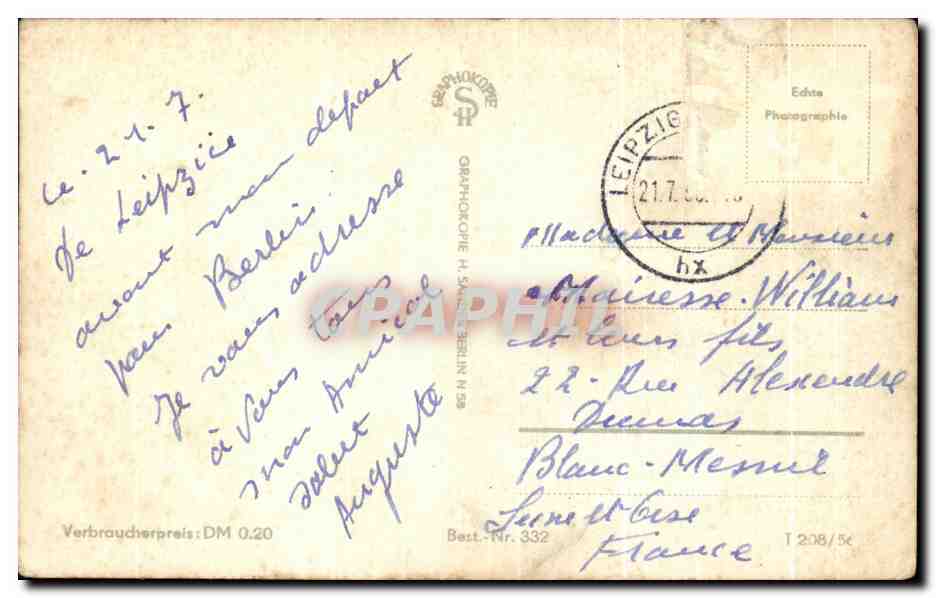 le. 21.7.
De Leipzice
avant mon depart
pour Berlin.
Je vous adresse
à Vous tous
mon Amical
Salut
Auguste
GRAPHOKOPIE
GRAPHOKOPIE H. BERLIN N 58
CPAPHIL
Echte
Photographie
LEIPZIG
21.7.
hx
Madame et Monsieur
Mairesse-William
et leurs fils
22-Rue Alexendre
Dumas
Blanc-Mesnil
Seine et Oise
France
Verbraucherpreis: DM 0.20
Best.-Nr. 332
T 208/56